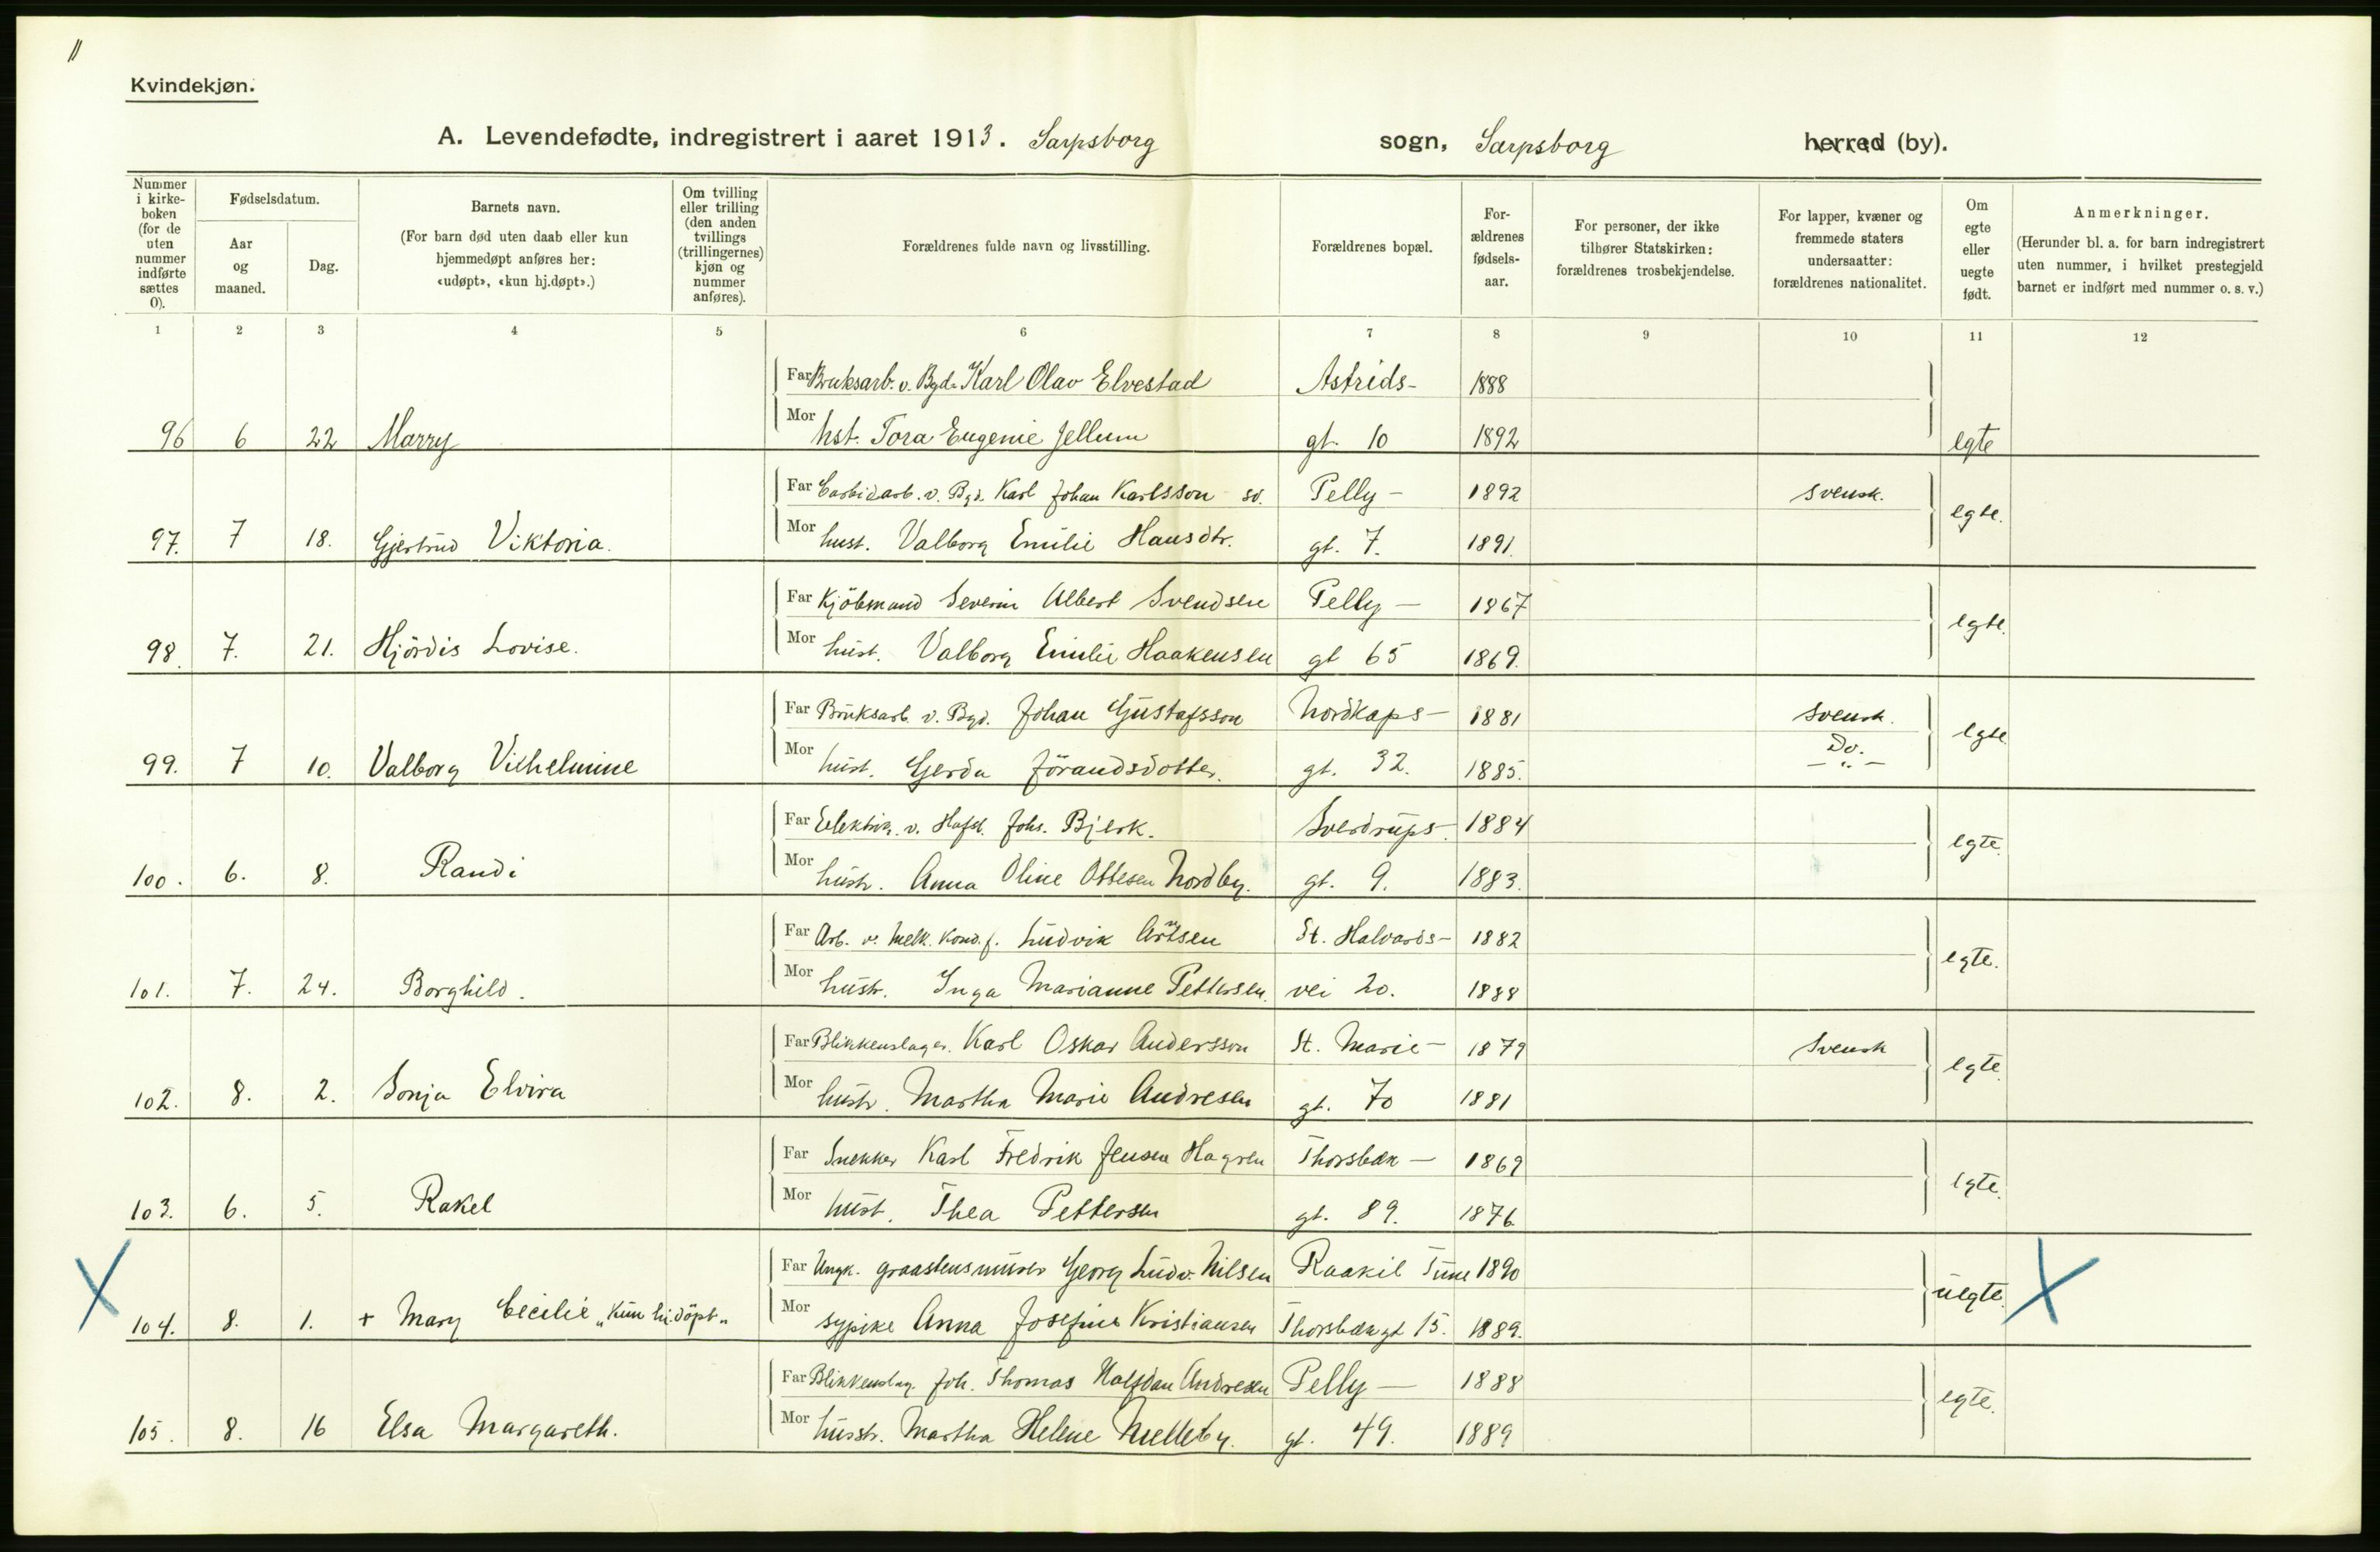 11
Kvindekjøn.
A. Levendefødte, indregistrert i aaret 1913. Sarpsborg sogn, Sarpsborg herred (by).
Nummer i kirke-boken (for de uten nummer indførte sættes 0).
Fødselsdatum.
Aar og maaned.
Dag.
Barnets navn.
(For barn død uten daab eller kun hjemmedøpt anføres her: «udøpt», «kun hj.døpt».)
Om tvilling eller trilling (den anden tvillings (trillingernes) kjøn og nummer anføres).
Forældrenes fulde navn og livsstilling.
Forældrenes bopæl.
For-ældrenes fødsels-aar.
For personer, der ikke tilhører Statskirken: forældrenes trosbekjendelse.
For lapper, kvæner og fremmede staters undersaatter: forældrenes nationalitet.
Om egte eller uegte født.
Anmerkninger.
(Herunder bl. a. for barn indregistrert uten nummer, i hvilket prestegjeld barnet er indført med nummer o. s. v.)
1 2 3 4 5 6 7 8 9 10 11 12
Far Bruksarb. v. Bgd. Karl Olav Elvestad Astrids- 1888
96 6 22 Marry Mor hst. Tora Eugenie Jellum gt. 10 1892 egte
Far Carbidarb. v. Bgd. Karl Johan Karlsson sv. Pelly- 1892 svensk.
97. 7 18. Gjertrud Viktoria. Mor hust. Valborg Emilie Hansdtr. gt. 7. 1891. egte.
Far Kjöbmand Severin Albert Svendsen Pelly- 1867
98. 7. 21. Hjördis Lovise. Mor hust. Valborg Emilie Haakensen gt 65 1869. egte.
Far Bruksarb. v. Bgd. Johan Gustafsson Nordkaps- 1881 svensk.
99. 7 10. Valborg Vilhelmine Mor hust. Gerda Jörandsdotter. gt. 32. 1885. Do. -"- egte
Far Elektrik. v. Hafsl. Johs. Bjerk. Sverdrups- 1884
100. 6. 8. Randi Mor hustr. Anna Oline Ottesen Nordby. gt. 9. 1883. egte.
Far Arb. v. Melk. Kond. f. Ludvik Artsen St. Halvards- 1882
101. 7. 24. Borghild. Mor hustr. Inga Marianne Pettersen. vei 20. 1888 egte.
Far Blikkenslager. Karl Oskar Andersson St. Marie- 1879 Svensk
102. 8. 2. Sonja Elvira Mor hustr. Martha Marie Andresen gt. 70 1881 egte.
Far Snekker Karl Fredrik Jensen Hagren Thorsbæk- 1869
103. 6. 5. Rakel Mor hust. Thea Pettersen gt. 89. 1876. egte.
Far Ungk. graastensmurer Georg Ludv. Nilsen Raakil Tune 1890
104. 8. 1. + Mary Cecilie „Kun hj.döpt„ Mor sypike Anna Josefine Kristiansen Thorsbækgt 15. 1889. uegte.
Far Blikkenslag. Joh. Thomas Halfdan Andresen Pelly- 1888
105. 8. 16 Elsa Margareth. Mor husstr. Martha Helene Melleby. gt. 49. 1889 egte.